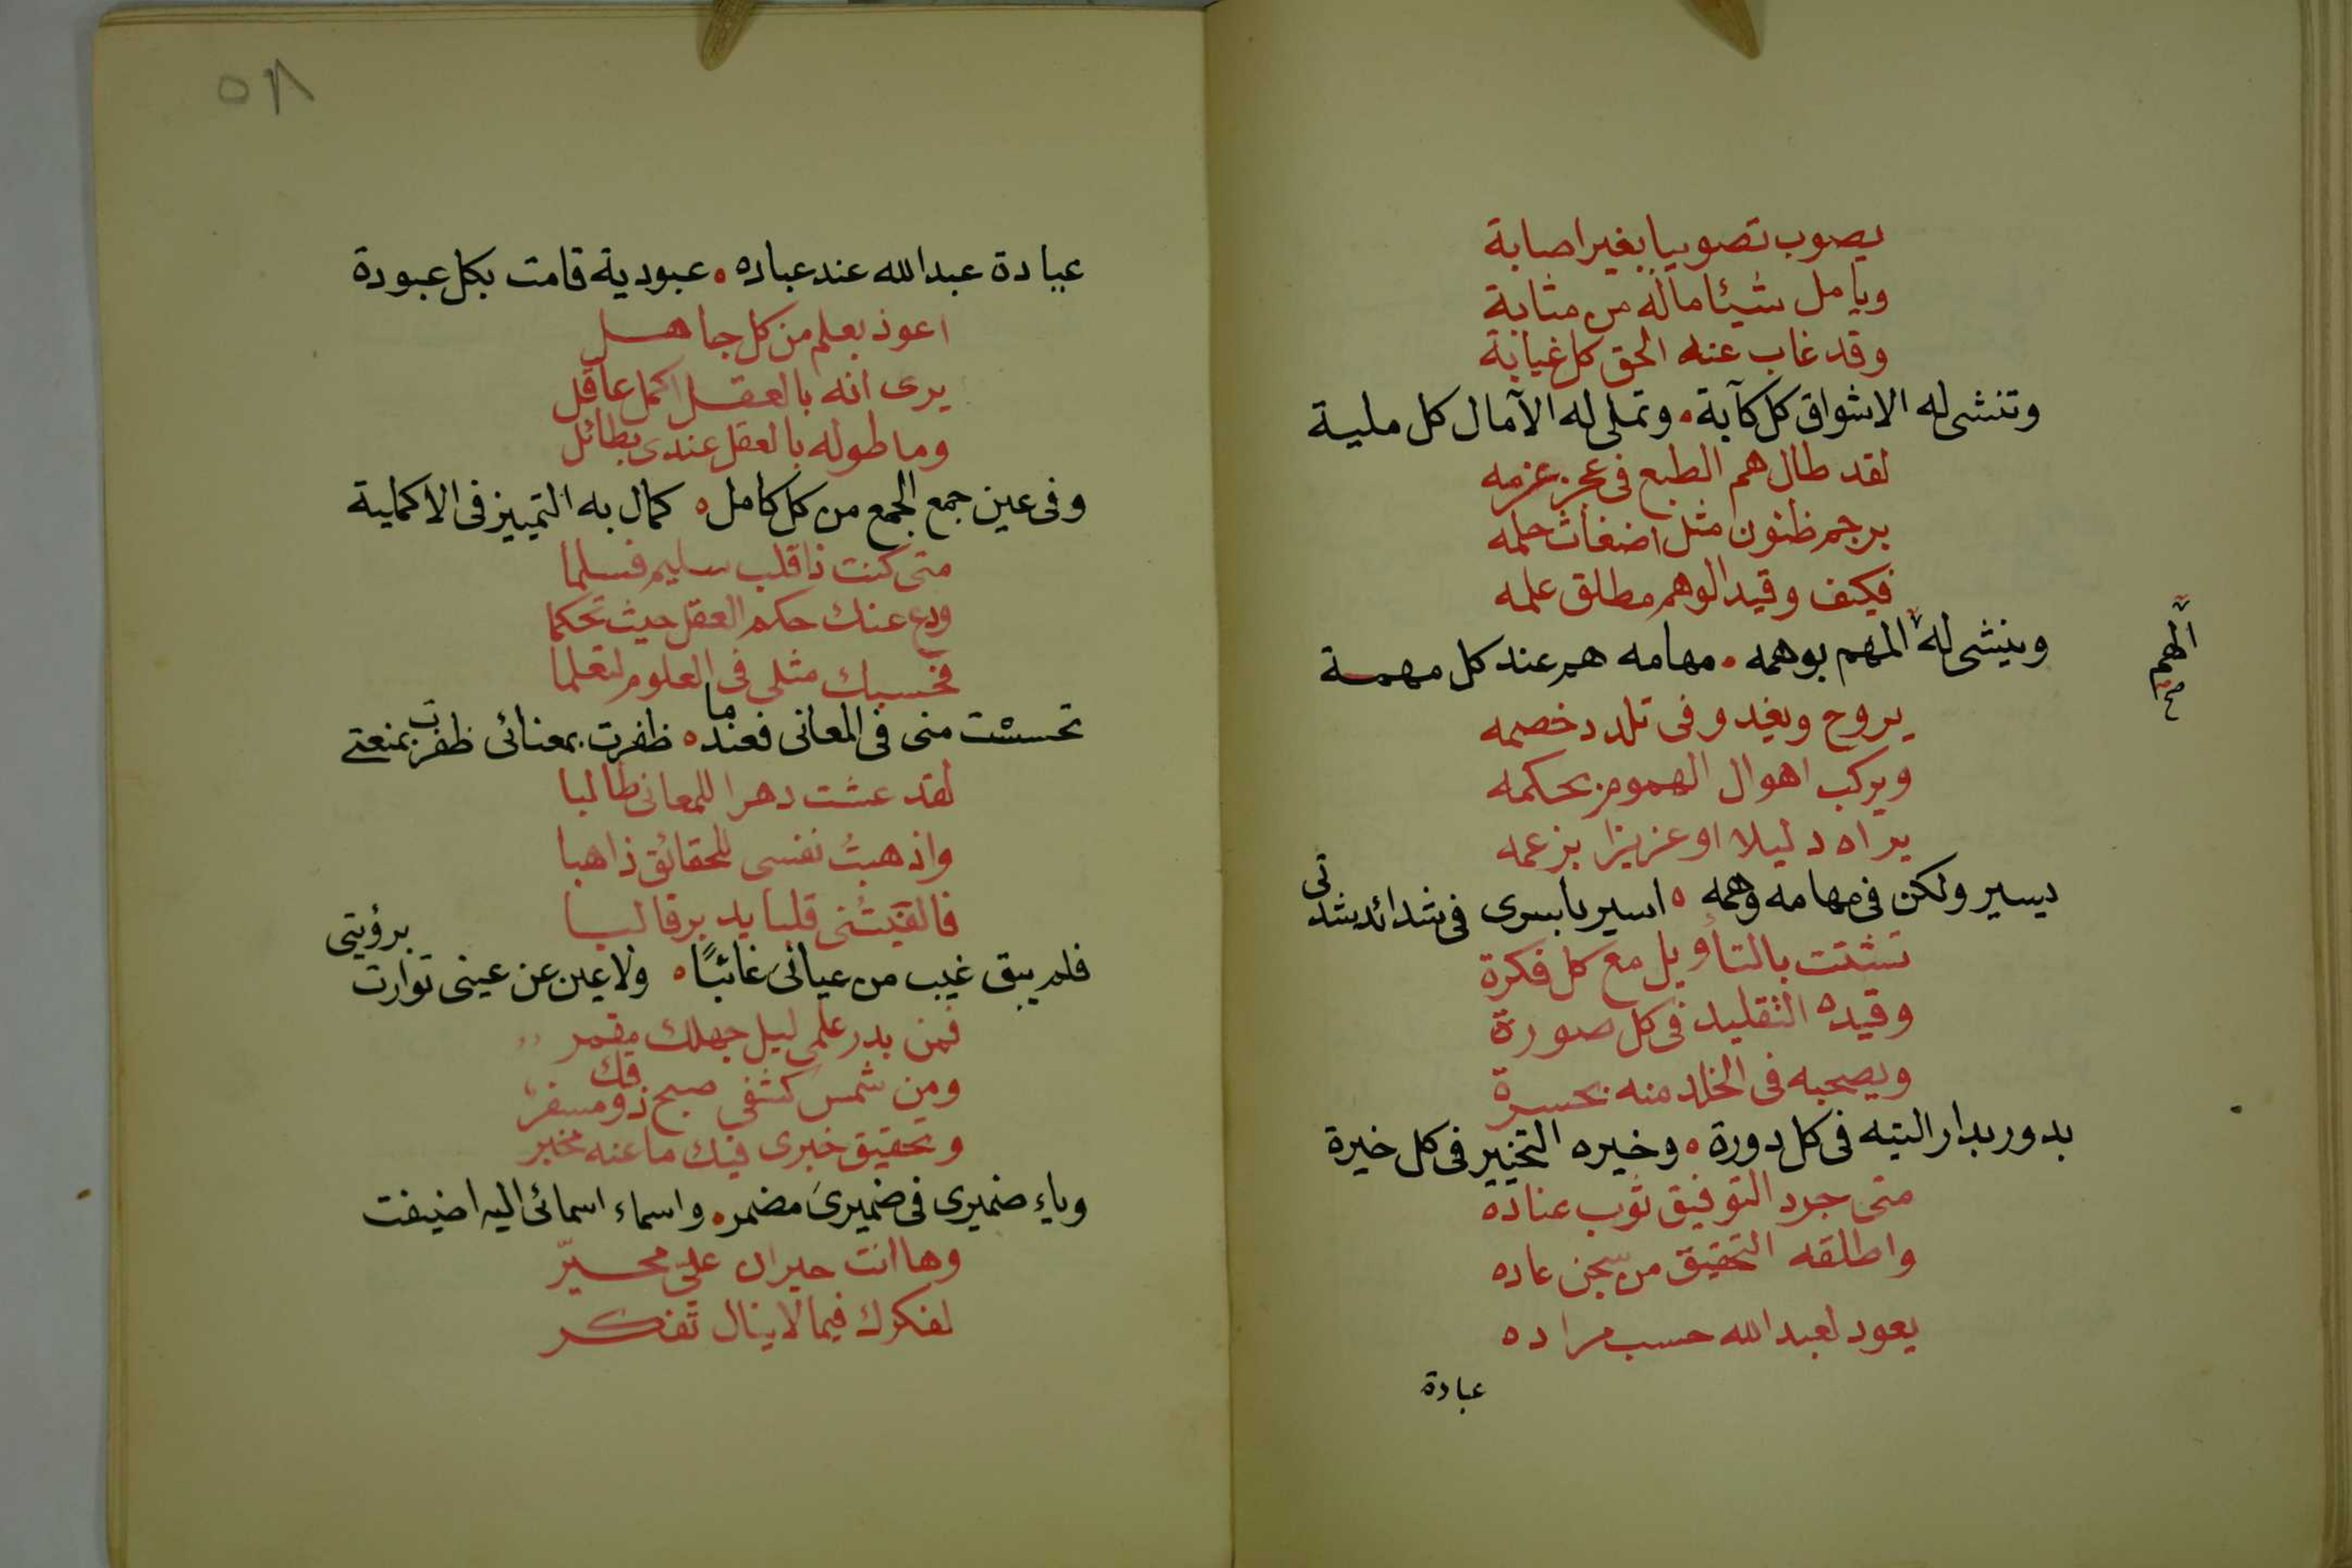 يصوب تصويبا بغير اصابة
ويامل شيئا ماله من مثابة
وقد غاب عنه الحق كل غيابة
وتنشى له الاشواق كل كآبة • وتملى له الآمال كل ملية
لقد طال هم الطبع فى عجز عزمه
برجم ظنون مثل اضغاث حلمه
فكيف وقيد الوهم مطلق علمه
وينشى له المهم بوهمه • مهامه هم عند كل مهمة
الهم
صح
يروح ويغيد وفى تلدد خصمه
ويركب اهوال الهموم بحكمه
يراه دليلا او عزيزا بزعمه
يسير ولكن فى مهامه وهمه • اسير باسرى فى شدائد شدتى
تشتت بالتأويل مع كل فكرة
وقيده التقليد فى كل صورة
ويصحبه فى الخلد منه بحسرة
بدور بدار التيه فى كل دورة • وخيره التخيير فى كل خيرة
متى جرد التوفيق ثوب عناده
واطلقه التحقيق من سجن عاده
يعود لعبد الله حسب مراده
عبادة
٥٨
عبادة عبد الله عند عباده • عبودية قامت بكل عبودة
اعوذ بعلم من كل جاهل
يرى انه بالعقل اكمل عاقل
وما طوله بالعقل عندى بطائل
وفى عين جمع الجمع من كل كامل • كمال به التمييز فى الاكملية
متى كنت ذا قلب سليم فسلما
ودع عنك حكم العقل حيث تحكما
فحسبك مثلى فى العلوم لتعلما
تحسست منى فى المعانى فعندما • ظفرت بمعنائى ظفرت بمنعتى
لقد عشت دهرا للمعانى طالبا
واذهبتُ نفسى للحقائق ذاهبا
فالفيتُنى قلبا يدبر قالبا
فلم يبق غيب من عيانى غائبًا • ولا عين عن عينى توارت برؤيتى
فمن بدر علمى ليل جهلك مقمر
ومن شمس كشفى صبح ذوقك مسفر
وتحقيق خبرى فيك ما عنه مخبر
وياء ضميرى فى ضميرى مضمر • واسماء اسمائى اليه اضيفت
وها انت حيران علىّ محيرّ
لفكرك فيما لا ينال تفكر